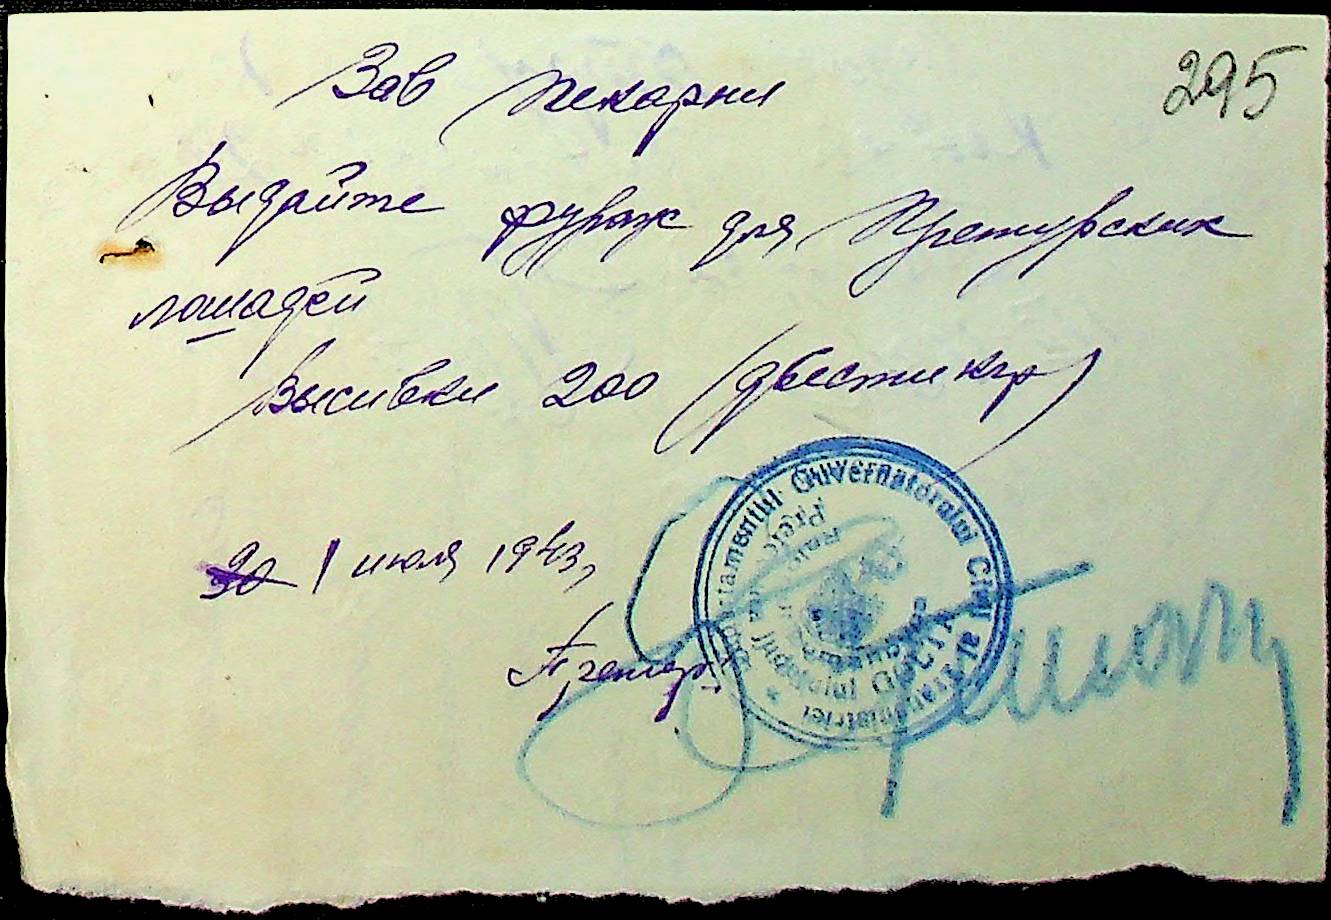 295
Зав Пекарни
Выдайте фураж для Претурских
лошадей
Высивки 200 (двести кгр)
30 1 июля 1943,
Претор:
Guvernatorului Civil al Transnistriei
Județul